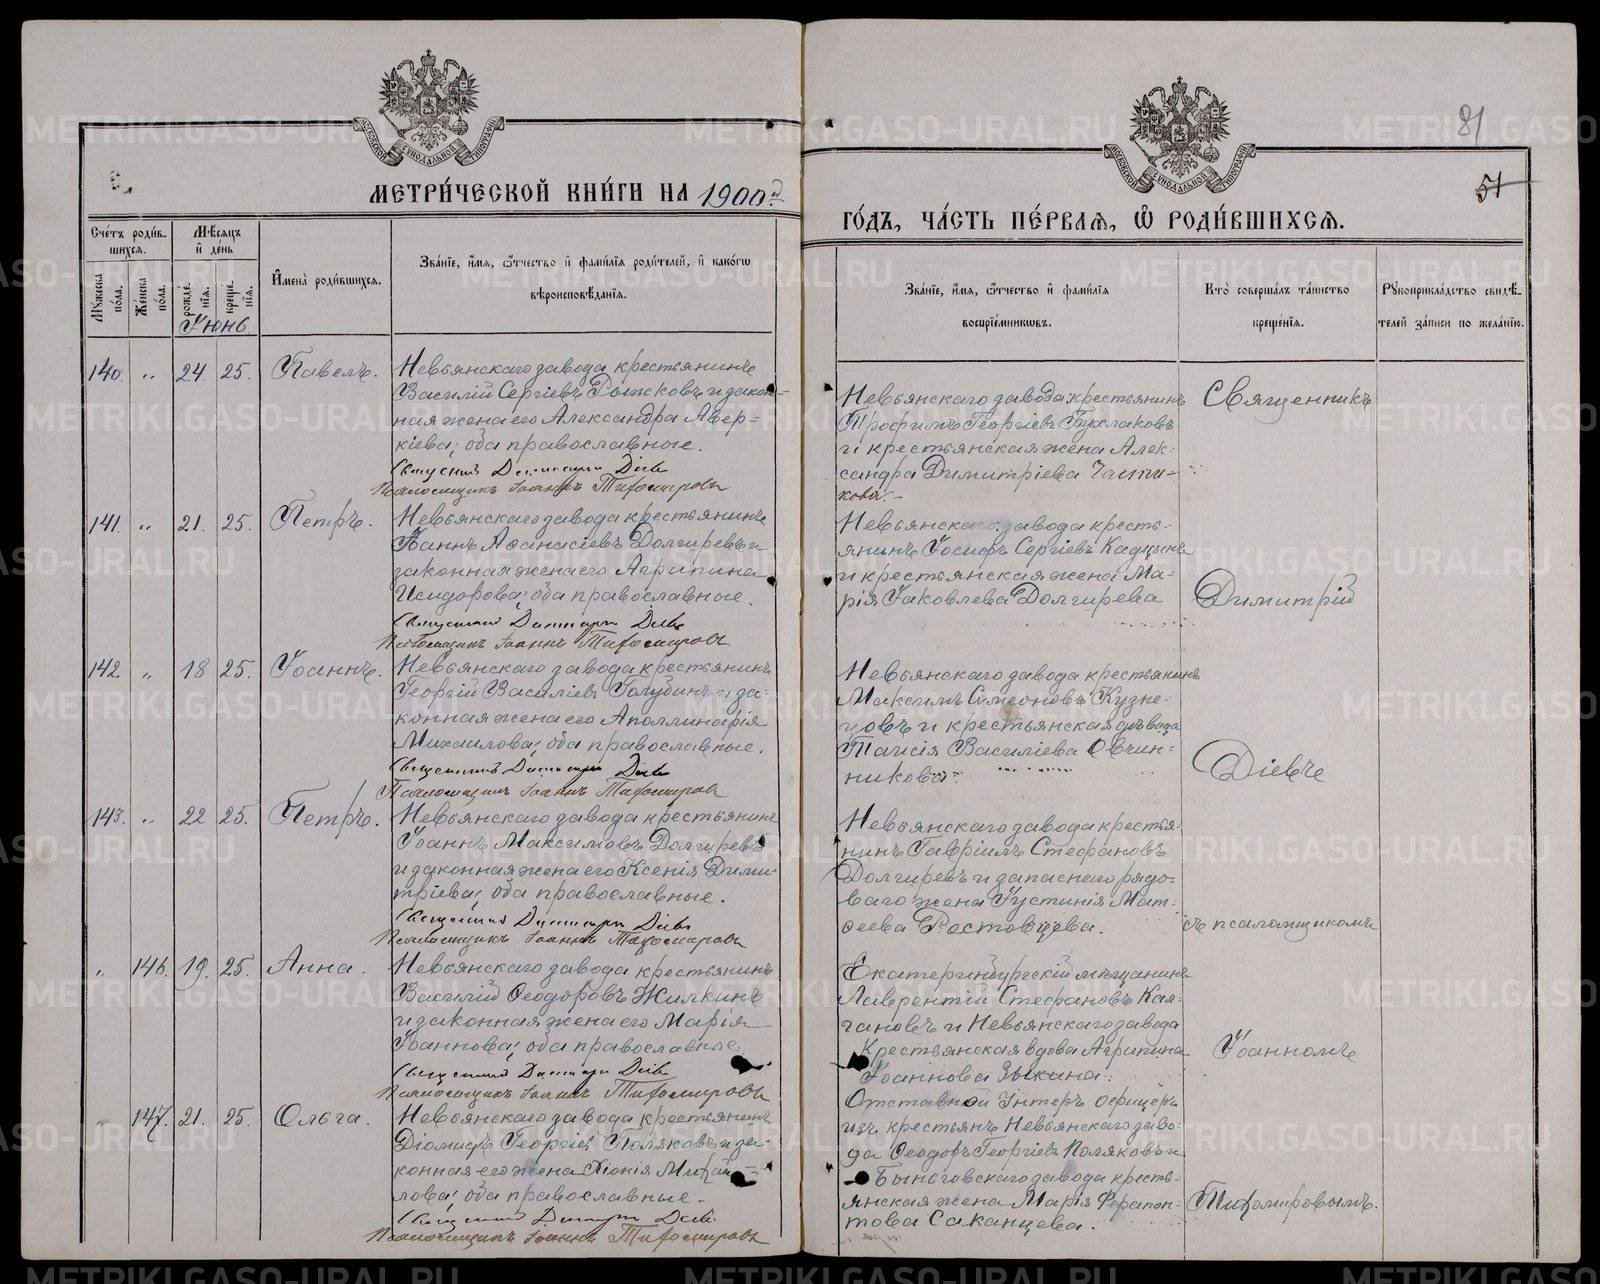 МЕТРИ́ЧЕСКОЙ КНИ́ГИ НА 1900 д
Сче́тъ роди́в-
шихся.
Мѣ́сяцъ
и҆ де́нь
Мꙋ́жеска
по́ла.
Же́нска
по́ла.
рожде́-
нїѧ.
креще́-
нїѧ.
И҆мена̀ роди́вшихся.
Зва́нїе, и҆́мѧ, ѻ҆́тчество и҆ фами́лїѧ роди́телей, и҆ како́гѡ
вѣроисповѣ́данїѧ.
Іюнь.
140. " 24. 25. Павелъ.
Невьянскаго завода крестьянинъ
Василій Сергіевъ Рыжковъ и закон-
ная жена его Александра Авер-
кіева; оба православные.
Священникъ Димитрій Діевъ
Псаломщикъ Іоаннъ Тихомировъ
141. " 21. 25. Петръ.
Невьянскаго завода крестьянинъ
Іоаннъ Аѳанасіевъ Долгиревъ и
законная жена его Агрипина
Исидорова; оба православные.
Священникъ Димитрій Діевъ
Псаломщикъ Іоаннъ Тихомировъ
142. " 18 25. Іоаннъ.
Невьянскаго завода крестьянинъ
Георгій Василіевъ Голубинъ и за-
конная жена его Аполлинарія
Михаилова; оба православные.
Священникъ Димитрій Діевъ
Псаломщикъ Іоаннъ Тихомировъ
143. " 22 25. Петръ.
Невьянскаго завода крестьянинъ
Іоаннъ Максимовъ Долгиревъ
и законная жена его Ксенія Дими-
тріева; оба православные.
Священникъ Димитрій Діевъ
Псаломщикъ Іоаннъ Тихомировъ
" 146. 19. 25. Анна.
Невьянскаго завода крестьянинъ
Василій Ѳеодоровъ Жилкинъ
и законная жена его Марія
Іоаннова; оба православные.
Священникъ Димитрій Діевъ
Псаломщикъ Іоаннъ Тихомировъ
" 147. 21. 25. Ольга.
Невьянскаго завода крестьянинъ
Діомидъ Георгіевъ Поляковъ и за-
конная его жена Хіонія Михаи-
лова; оба православные.
Священникъ Димитрій Діевъ
Псаломщикъ Іоаннъ Тихомировъ
81
51
ГО́ДЪ, ЧА́СТЬ ПЕ́РВАѦ, Ѡ҆ РОДИ́ВШИХСѦ.
Зва́нїе, и҆́мѧ, ѻ҆́тчество и҆ фами́лїѧ
воспрїе́мникѡвъ.
Кто̀ соверша́лъ та́инство
креще́нїѧ.
Рꙋкоприкла́дство свидѣ́-
телей за́писи по жела́нїю.
Невьянскаго завода крестьянинъ
Трофимъ Георгіевъ Бухлаковъ
и крестьянская жена Алек-
сандра Димитріева Части-
кова.
Невьянскаго завода кресть-
янинъ Іосифъ Сергіевъ Кадцынъ
и крестьянская жена Ма-
рія Іаковлева Долгирева
Невьянскаго завода крестьянинъ
Максимъ Симеоновъ Кузне-
цовъ и крестьянская дѣвица
Таисія Василіева Овчин-
никова.
Невьянскаго завода крестья-
нинъ Гавріилъ Стефановъ
Долгиревъ и запаснаго рядо-
ваго жена Іустинія Мат-
ѳеева Ростовцева.
Екатеринбургскій мѣщанинъ
Лаврентій Стефановъ Кал-
гановъ и Невьянскаго завода
Крестьянская вдова Агрипина
Іоаннова Зыкина.
Отставной Унтеръ офицеръ
изъ крестьянъ Невьянскаго заво-
да Ѳеодоръ Георгіевъ Поляковъ и
Быньговскаго завода кресть-
янская жена Марія Ферапон-
това Саканцева.
Священникъ
Димитрій
Діевъ
съ псаломщикомъ
Іоанномъ
Тихомировымъ.
METRIKI.GASO-URAL.RU